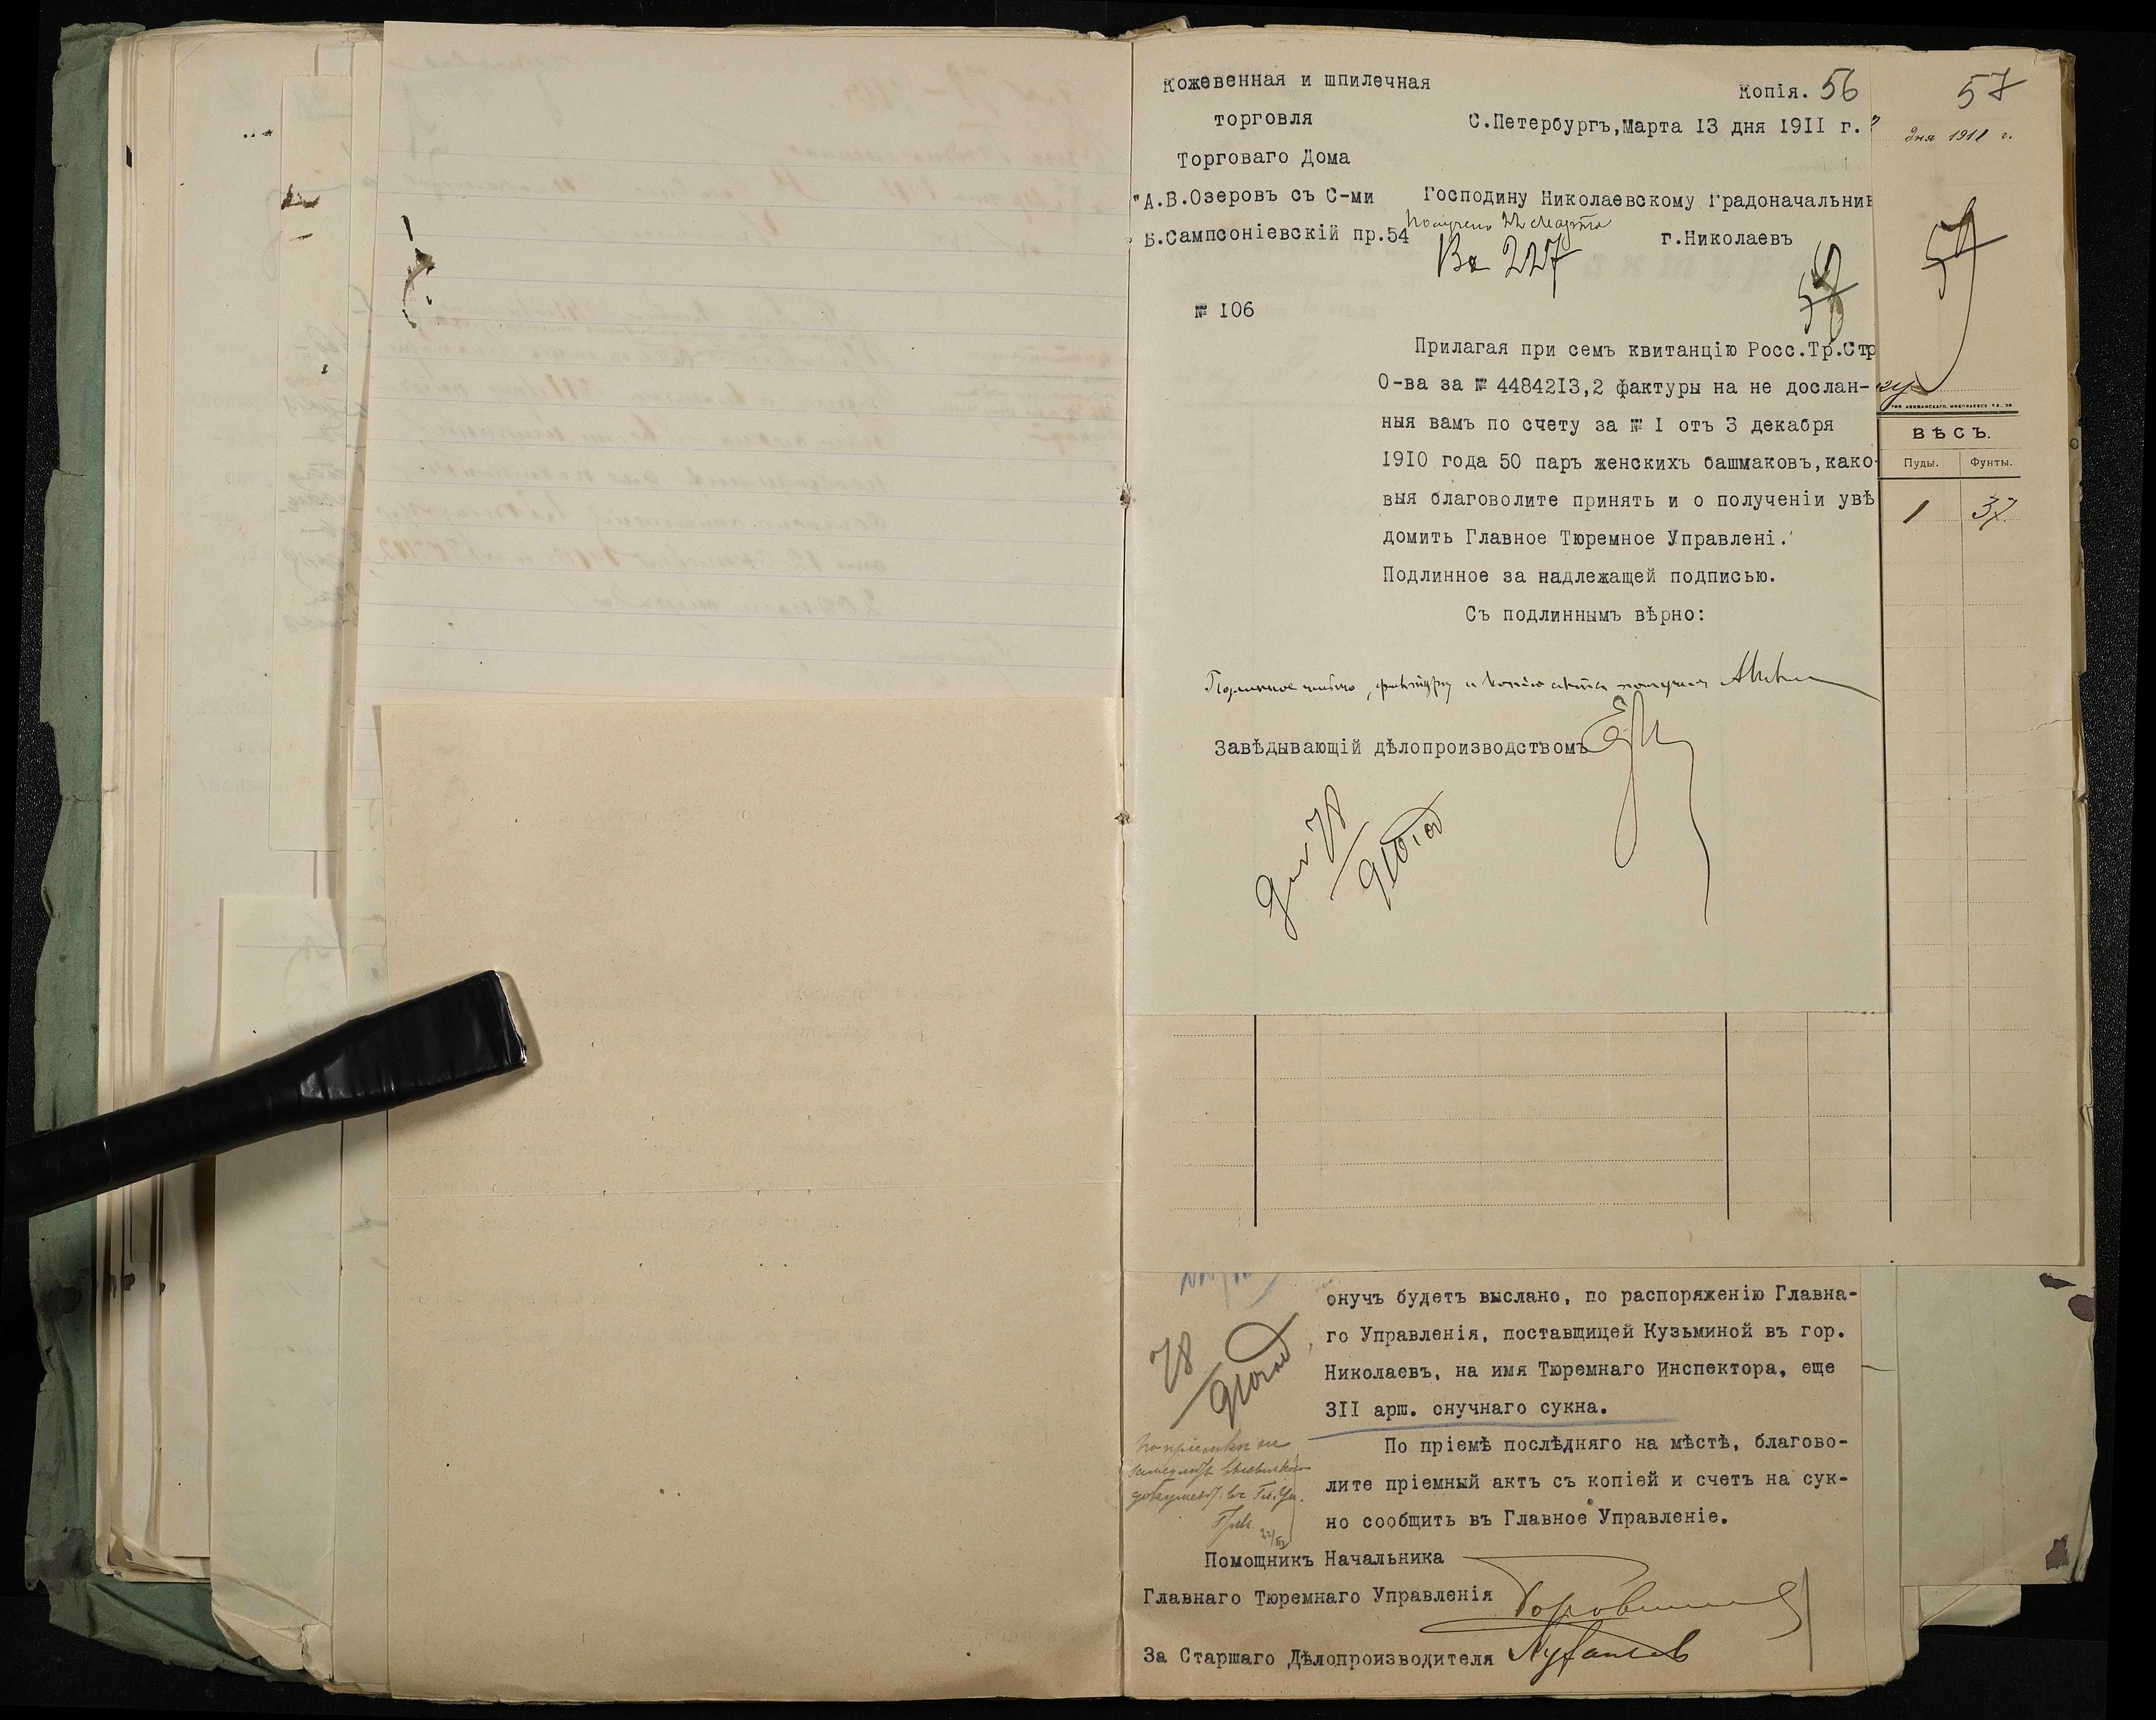 Кожевенная и шпилечная
торговля
Торговаго Дома
"А.В.Озеровъ съ С-ми
Б.Сампсоніевскій пр.54
№ 106
Копія. 56
С.Петербургъ,Марта 13 дня 1911 г.
Господину Николаевскому Градоначальник
Получено 22 марта
г.Николаевъ
Вх 227
Прилагая при семъ квитанцію Росс.Тр.Стр
О-ва за № 4484213,2 фактуры на не дослан-
ныя вамъ по счету за № I отъ 3 декабря
1910 года 50 паръ женскихъ башмаковъ,како-
выя благоволите принять и о полученіи увѣ
домить Главное Тюремное Управлені.
Подлинное за надлежащей подписью.
Съ подлиннымъ вѣрно:
Подлинное письмо, фактуру и копію акта получилъ
Завѣдывающій дѣлопроизводствомъ
78
910 год
57
дня 1911 г.
59
ВѢСЪ.
Пуды. Фунты.
1 37
онучъ будетъ выслано, по распоряженію Главна-
го Управленія, поставщицей Кузьминой въ гор.
Николаевъ, на имя Тюремнаго Инспектора, еще
3II арш. онучнаго сукна.
По пріемѣ послѣдняго на мѣстѣ, благово-
лите пріемный актъ съ копіей и счетъ на сук-
но сообщить въ Главное Управленіе.
78
910 год
Помощникъ Начальника
Главнаго Тюремнаго Управленія
За Старшаго Дѣлопроизводителя